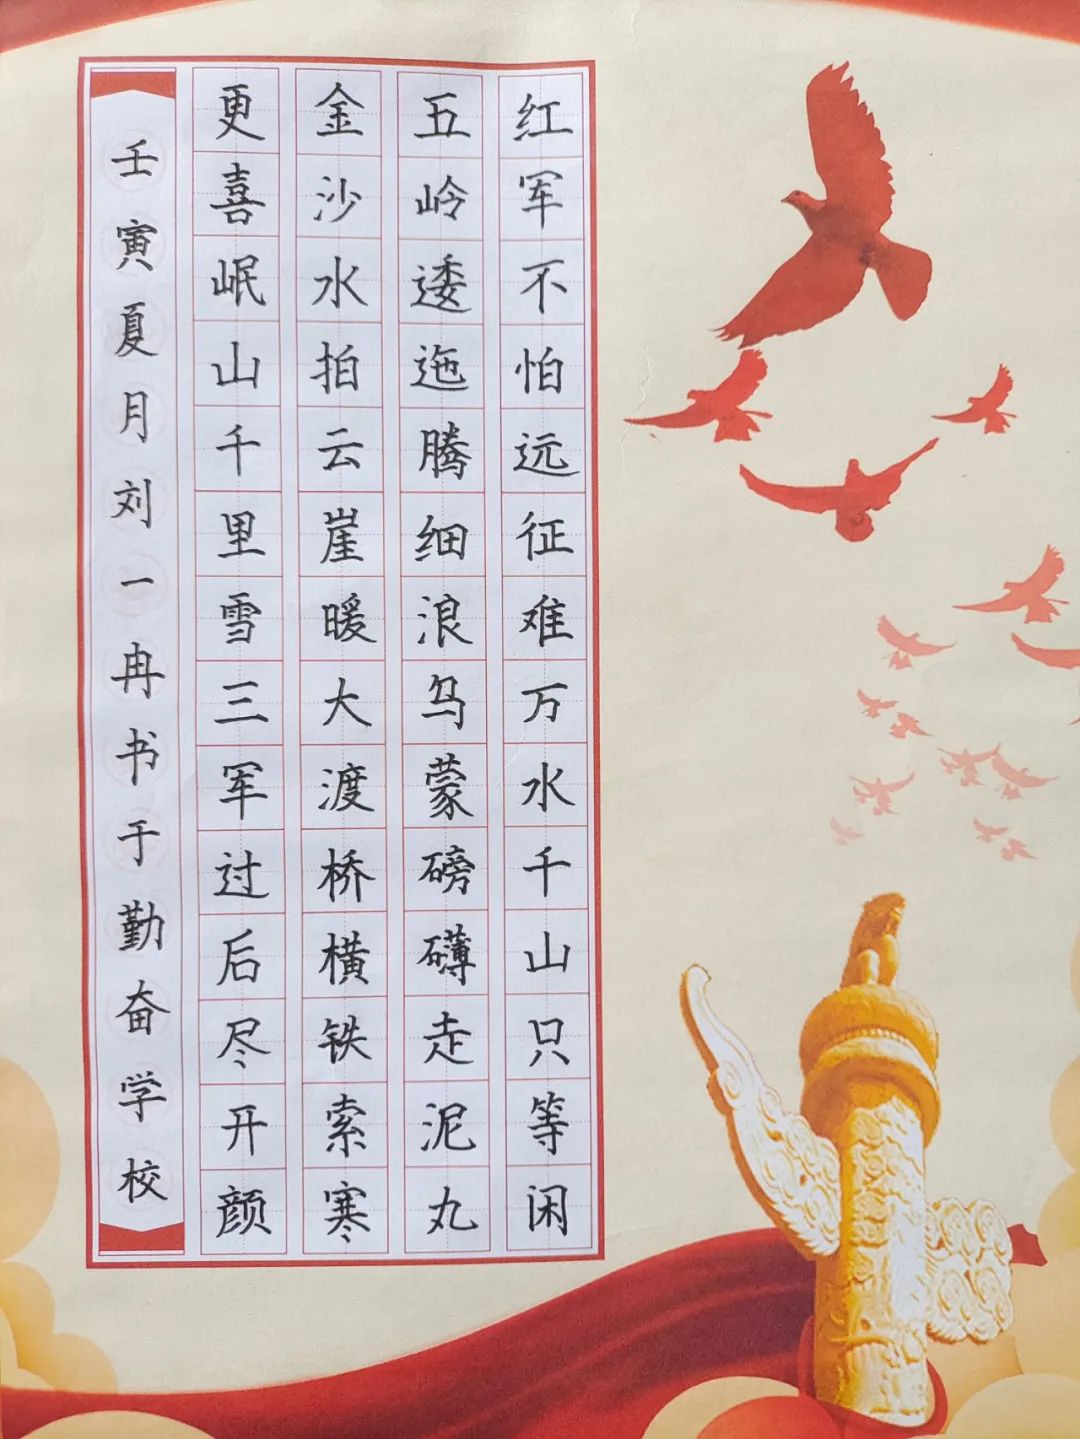 红军不怕远征难万水千山只等闲
五岭逶迤腾细浪乌蒙磅礴走泥丸
金沙水拍云崖暖大渡桥横铁索寒
更喜岷山千里雪三军过后尽开颜
壬寅夏月刘一冉书于勤奋学校